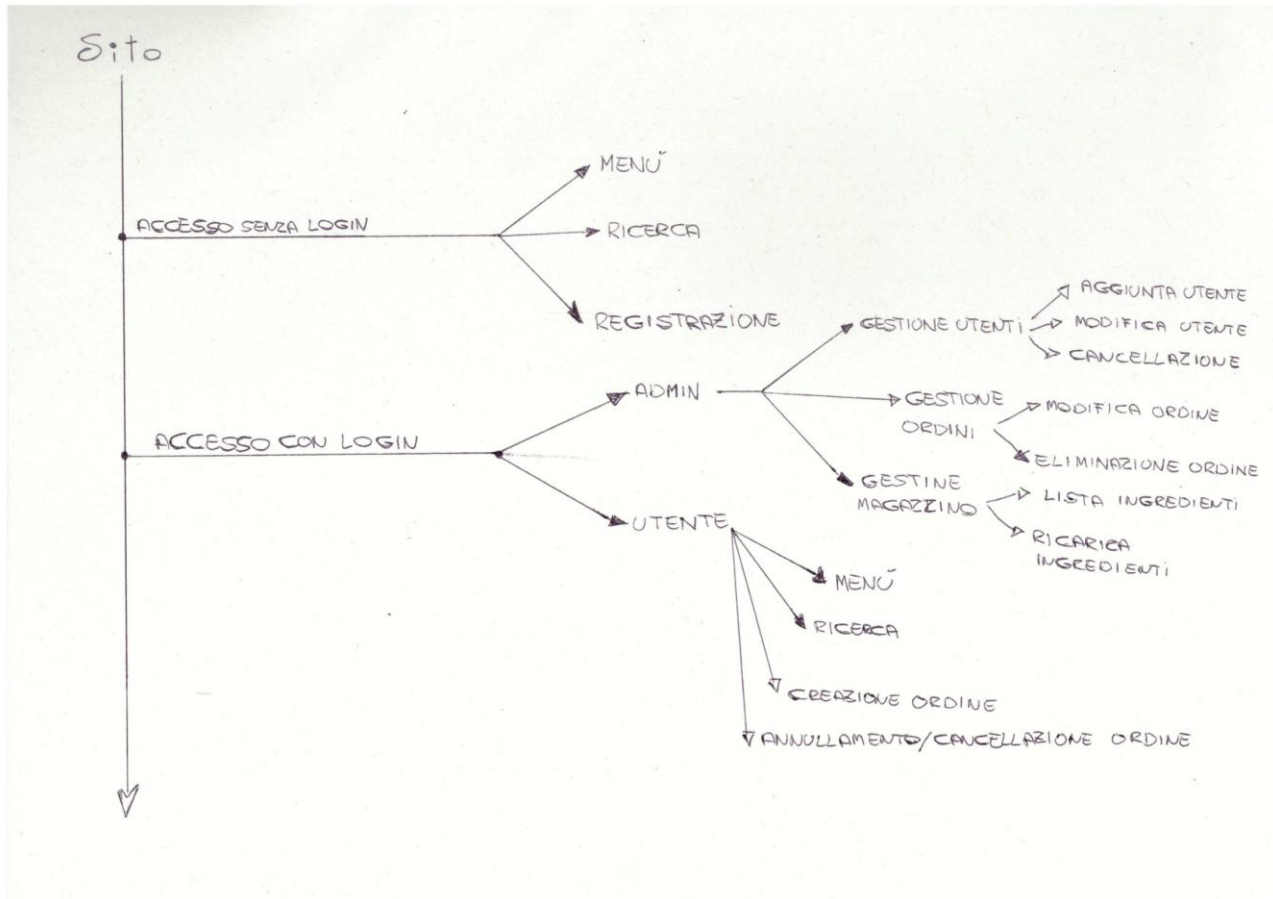 Sito
MENÚ
ACCESSO SENZA LOGIN
RICERCA
REGISTRAZIONE
ADMIN
GESTIONE UTENTI
AGGIUNTA UTENTE
MODIFICA UTENTE
CANCELLAZIONE
GESTIONE
ORDINI
MODIFICA ORDINE
ELIMINAZIONE ORDINE
GESTINE
MAGAZZINO
LISTA INGREDIENTI
RICARICA
INGREDIENTI
ACCESSO CON LOGIN
UTENTE
MENÚ
RICERCA
CREAZIONE ORDINE
ANNULLAMENTO/CANCELLAZIONE ORDINE